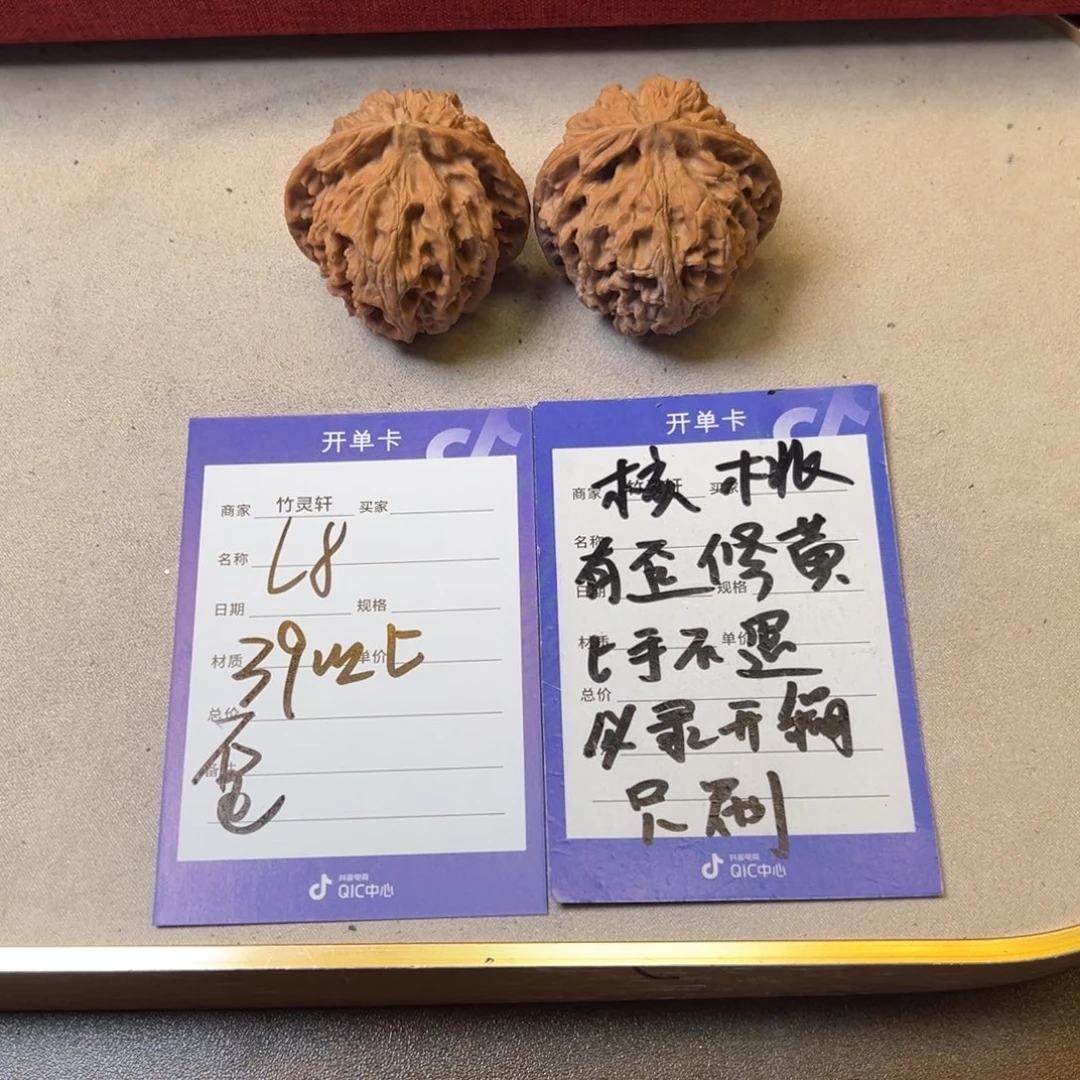 开单卡
商家 竹灵轩 买家
名称 L8
日期 规格
材质 39 以上 单价
总价
歪
抖音电商
QIC中心
开单卡
商家 买家
核桃
名称
有歪修黄
日期 规格
材质 单价
上手不退
总价
必录开箱
只刷
抖音电商
QIC中心